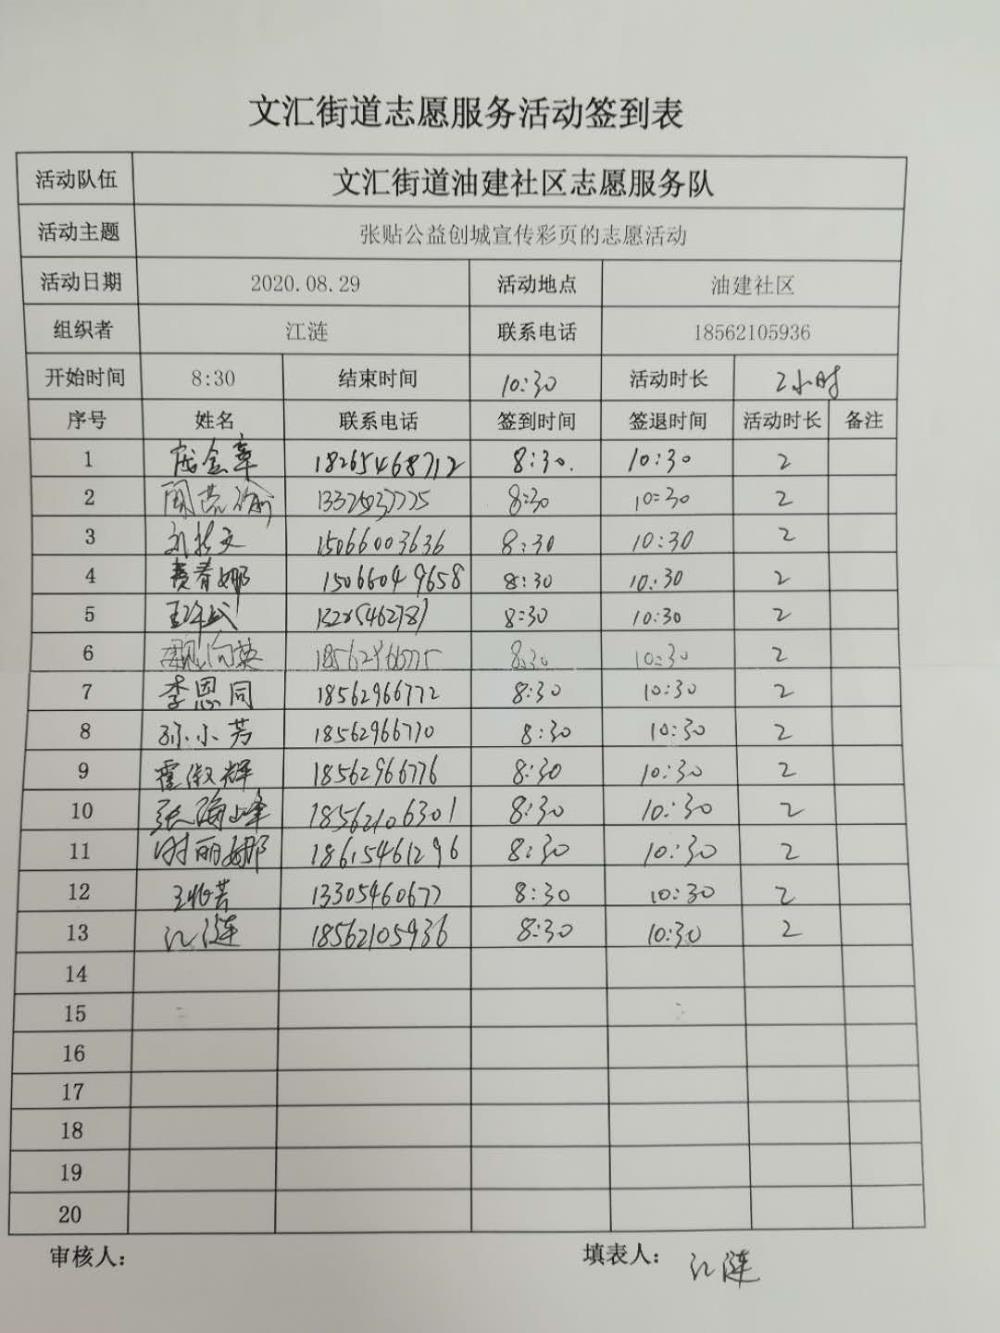 文汇街道志愿服务活动签到表
活动队伍 文汇街道油建社区志愿服务队
活动主题 张贴公益创城宣传彩页的志愿活动
活动日期 2020.08.29 活动地点 油建社区
组织者 江涟 联系电话 18562105936
开始时间 8:30 结束时间 10:30 活动时长 2小时
序号 姓名 联系电话 签到时间 签退时间 活动时长 备注
1 庞金章 18265468712 8:30. 10:30 2
2 8:30 10:30 2
3 15066003636 8:30 10:30 2
4 青娜 15066049658 8:30 10:30 2
5 8:30 10:30 2
6 魏向英 8:30 10:30 2
7 李恩同 18562966772 8:30 10:30 2
8 孙小芳 18562966770 8:30 10:30 2
9 霍俶辉 18562966776 8:30 10:30 2
10 张海峰 18562106301 8:30 10:30 2
11 谢丽娜 18615461296 8:30 10:30 2
12 13305460677 8:30 10:30 2
13 江涟 18562105936 8:30 10:30 2
14
15
16
17
18
19
20
审核人： 填表人： 江涟